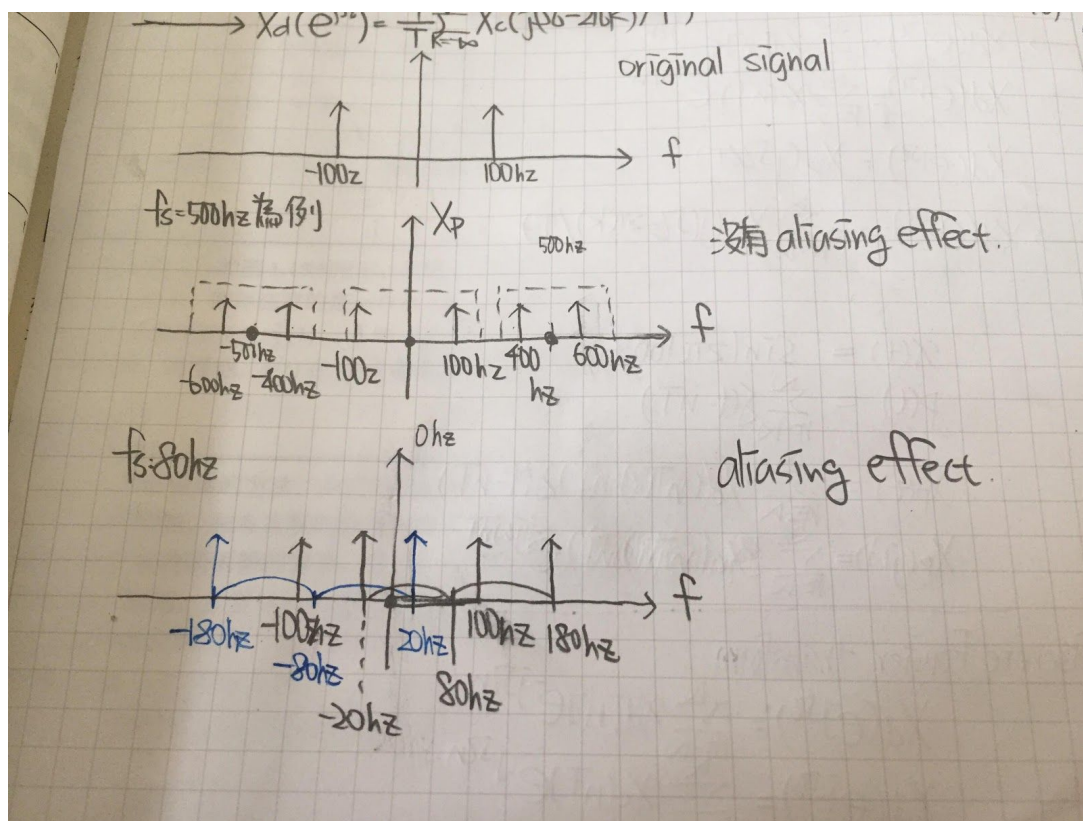 Xd(e^jω)= 1/T Σ k=-∞ Xc(j(ω-2πk)/T)
original signal
-100z 100hz f
fs=500hz為例 Xp
500hz
沒有 aliasing effect.
f
-500hz
-600hz -400hz -100z 100hz 400hz 600hz
0hz
fs:80hz aliasing effect.
f
-180hz -100hz 20hz 100hz 180hz
-80hz 80hz
-20hz